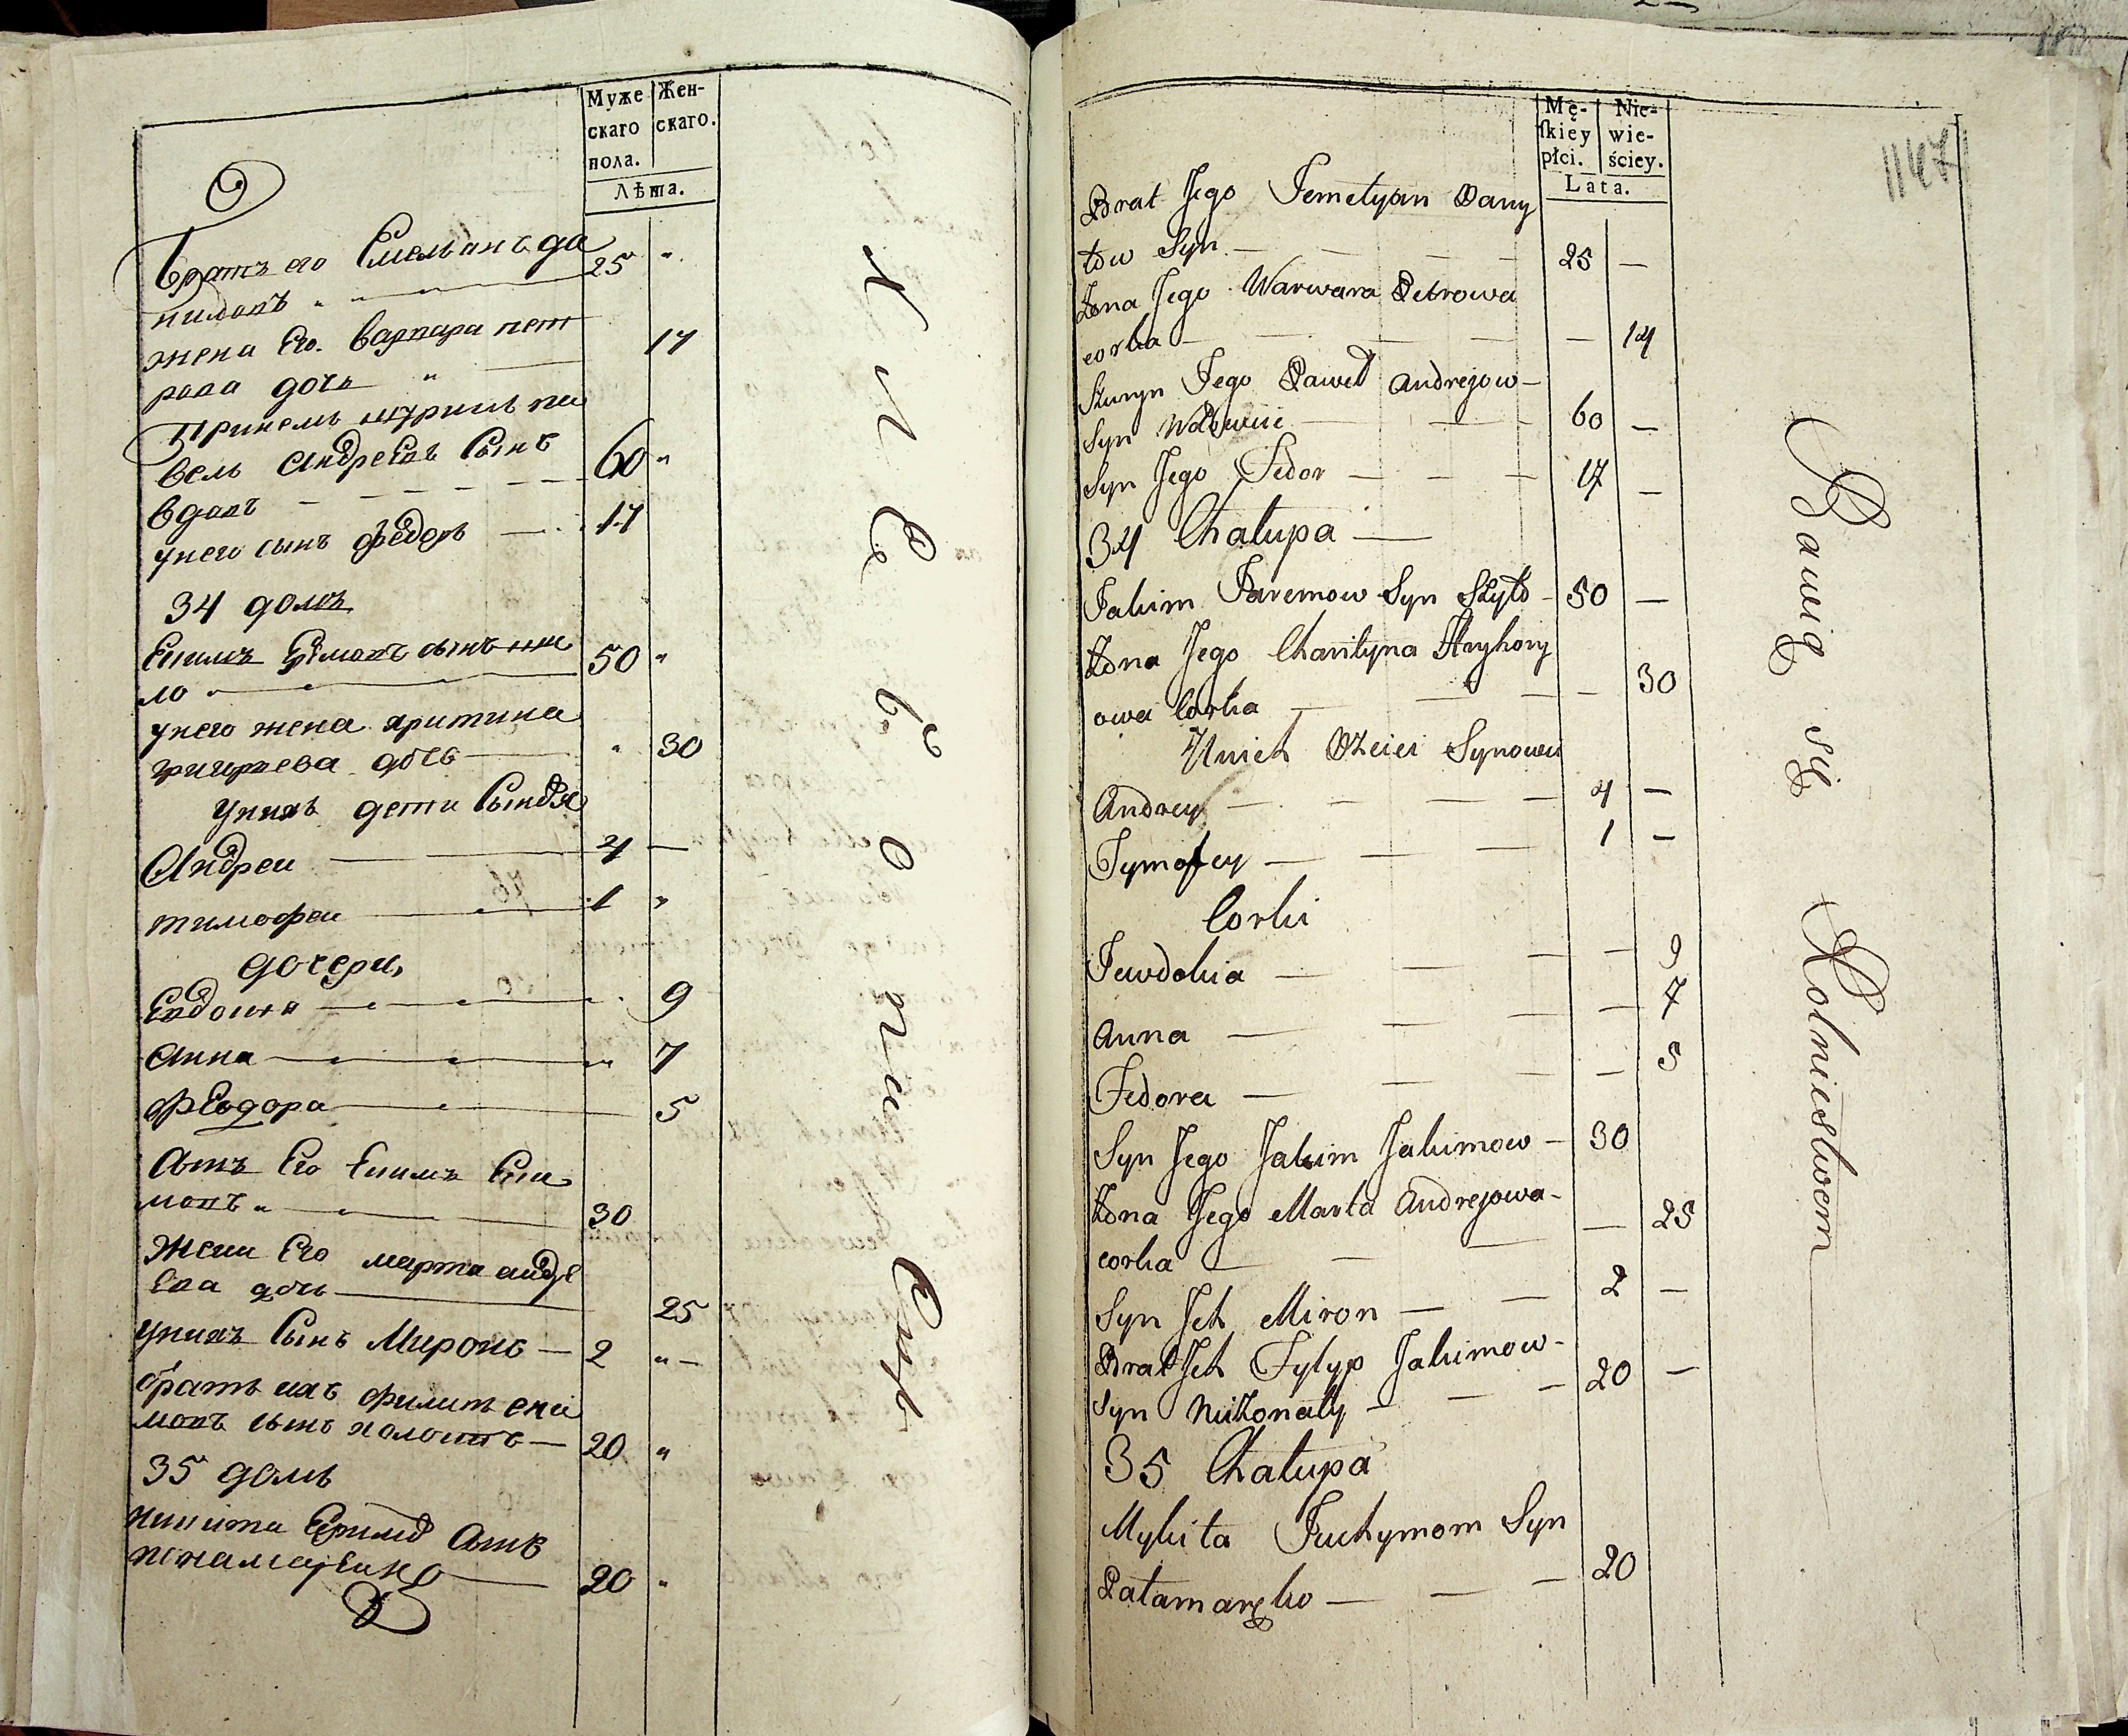 Муже
скаго
пола.
Жен-
скаго.
Лѣта.
братъ его Емельянъ да
ниловъ 25
жена Его варвара пет
рова дочь 17
Приемъ шуринъ па
велъ Андреевъ Сынъ 60
вдовъ
унего сынъ федоръ 17
34 домъ
Екимъ сынъ
ло 50
унего жена харитина
григорьева дочь 30
унихъ дети Сыновья
Андреи 4
тимофеи 1
дочери
Евдокия 9
Анна 7
Феодора 5
Сынъ Его Екимъ Еки
мовъ 30
Жена Его марта андре
ева дочь 25
унихъ Сынъ Миронъ 2
братъ ихъ филипъ еки
мовъ сынъ холостъ 20
35 домъ
никита Ефимовъ Сынъ
20
Хлебопашествомъ
Mę-
ſkiey
płci.
Nie-
wie-
ściey.
Lata.
1147
Brat Jego Jemelyan Dany
łow Syn 25
Żona Jego Warwara Petrowa
corka 14
Szuryn Jego Paweł Andrejow
Syn Wdowiec 60
Syn Jego Fedor 17
34 Chałupa
Jakim Jaremow Syn Szyło 50
Żona Jego Charityna Hryhory
owa Corka 30
Unich Dzieci Synowie
Andrey 4
Tymofey 1
Corki
Jewdokia 9
Anna 7
Fedora 5
Syn Jego Jakim Jakimow 30
Żona Jego Marta Andrejowa
corka 25
Syn Ich Miron 2
Brat Ich Fylyp Jakimow
Syn Niżonaty 20
35 Chałupa
Mykita Juchymom Syn
Patamarzko 20
Bawią się Rolnictwem